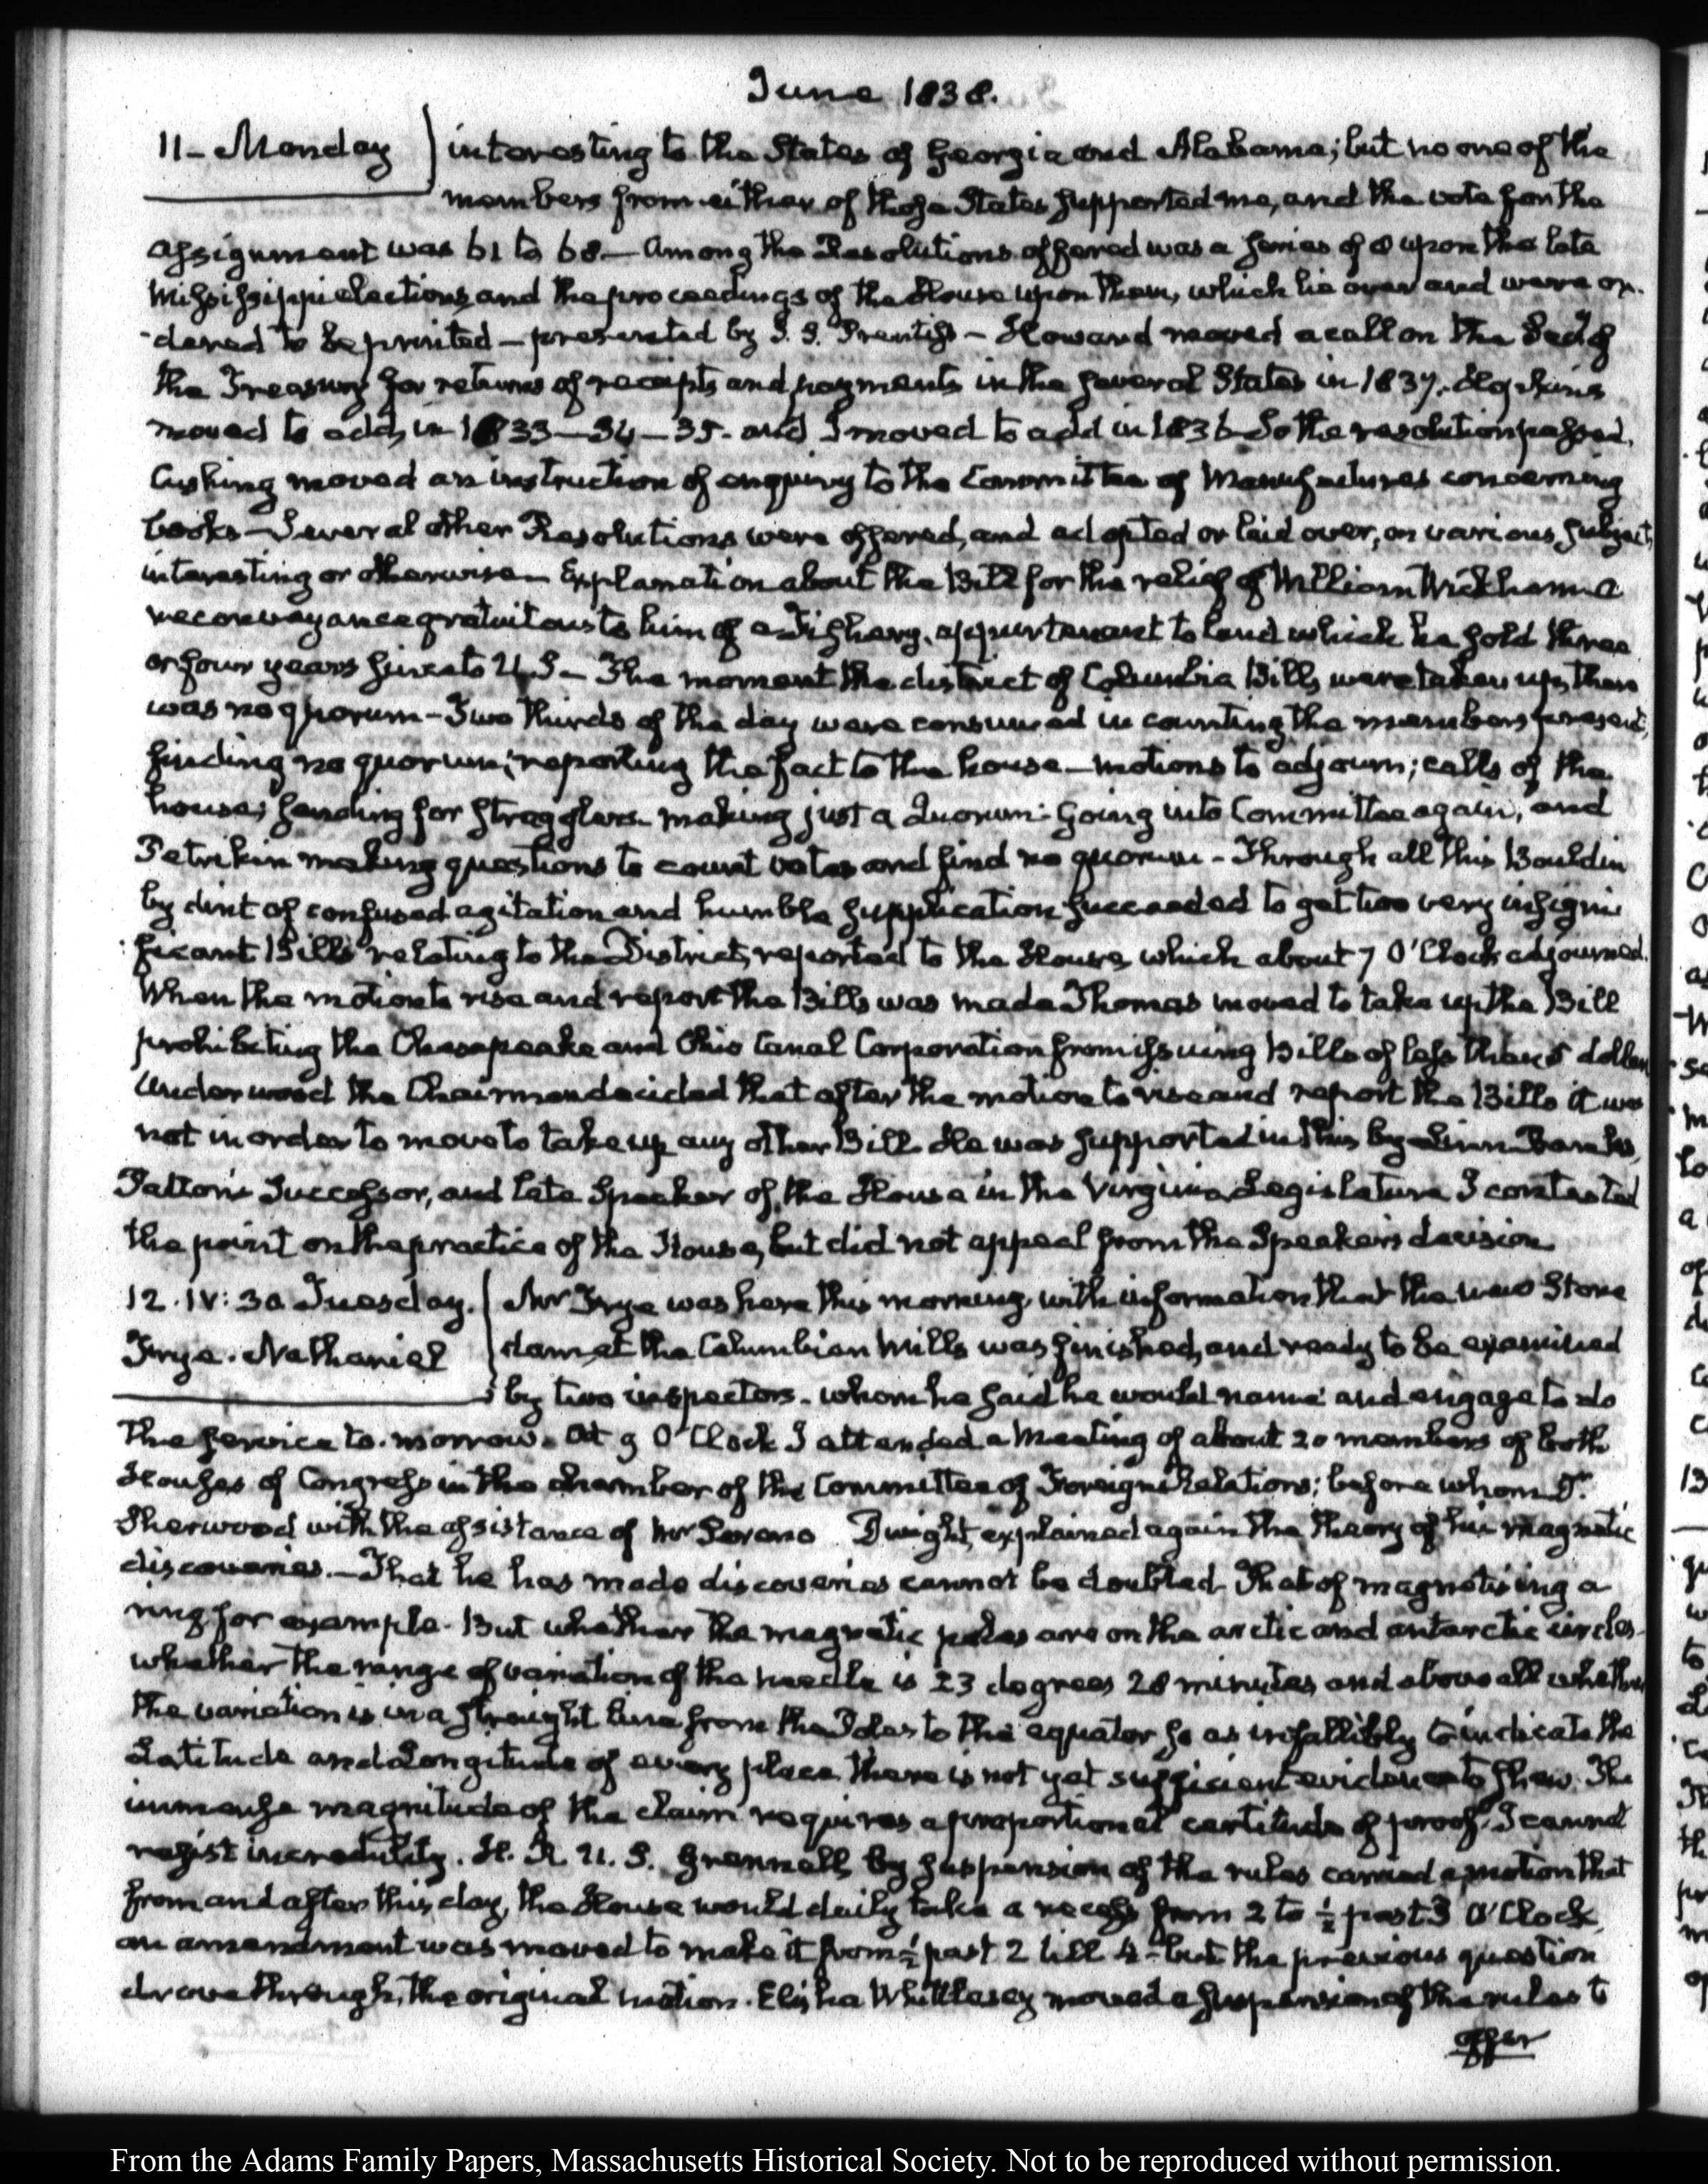 June 1838.
11 - Monday } interesting to the States of Georgia and Alabama; but no one of the
members from either of those States supported me, and the vote for the
assignment was 61 to 68 — Among the Resolutions offered was a series of 8 upon the late
Mississippi elections, and the proceedings of the House upon them, which lie over and were or-
-dered to be printed — presented by S. S. Prentiss — Howard moved a call on the Secy of
the Treasury for returns of receipts and payments in the several States in 1837. Hopkins
moved to add, in 1833 — 34 — 35 - and I moved to add in 1836 So the resolution passed.
Cushing moved an instruction of enquiry to the Committee of Manufactures concerning
books — Several other Resolutions were offered, and adopted or laid over, on various subjects
interesting or otherwise — Explanation about the Bill for the relief of William Wickham a
reconveyance gratuitous to him of a Fishery, appurtenant to land which he sold three
or four years since to U.S — The moment the district of Columbia Bills were taken up, there
was no quorum - Two thirds of the day were consumed in counting the members present;
finding no quorum; reporting the fact to the house — motions to adjourn; calls of the
house; sending for stragglers - making just a Quorum - Going into Committee again, and
Petrikin making questions to count votes and find no quorum - Through all this Bouldin
by dint of confused agitation and humble supplication succeeded to get two very insigni-
-ficant Bills relating to the District, reported to the House, which about 7 O'Clock adjourned.
When the motion to rise and report the Bills was made Thomas moved to take up the Bill
prohibiting the Chesapeake and Ohio Canal Corporation from issuing Bills of less than 5 dollars
Underwood the Chairman decided that after the motion to rise and report the Bills it was
not in order to move to take up any other Bill. He was supported in this by Linn Banks,
Patton's Successor, and late Speaker of the House in the Virginia Legislature I contested
the point on the practice of the House, but did not appeal from the Speaker's decision.
12. IV: 30 Tuesday. } Mr Frye was here this morning, with information that the new Stone
Frye. Nathaniel } dam at the Columbian Mills was finished, and ready to be examined
by two inspectors - whom he said he would name and engage to do
the service to-morrow. At 9 O'Clock I attended a Meeting of about 20 members of both
Houses of Congress in the chamber of the Committee of Foreign Relations; before whom Dr.
Sherwood with the assistance of Mr Sereno Dwight, explained again the theory of his magnetic
discoveries. — That he has made discoveries cannot be doubted That of magnetising a
ring for example. But whether the magnetic poles are on the arctic and antarctic circles -
whether the range of variation of the needle is 23 degrees 28 minutes and above all whether
the variation is in a straight line from the Poles to the equator so as infallibly to indicate the
Latitude and Longitude of every place there is not yet sufficient evidence to shew. The
immense magnitude of the claim requires a proportional certitude of proof. I cannot
resist incredulity. H. R. U. S. Grennell, by suspension of the rules carried a motion that
from and after this day, the House would daily take a recess from 2 to ½ past 3 O'Clock,
an amendment was moved to make it from ½ past 2 till 4 - but the previous question
drove through, the original motion. Elisha Whittlesey moved a suspension of the rules to
offer
From the Adams Family Papers, Massachusetts Historical Society. Not to be reproduced without permission.